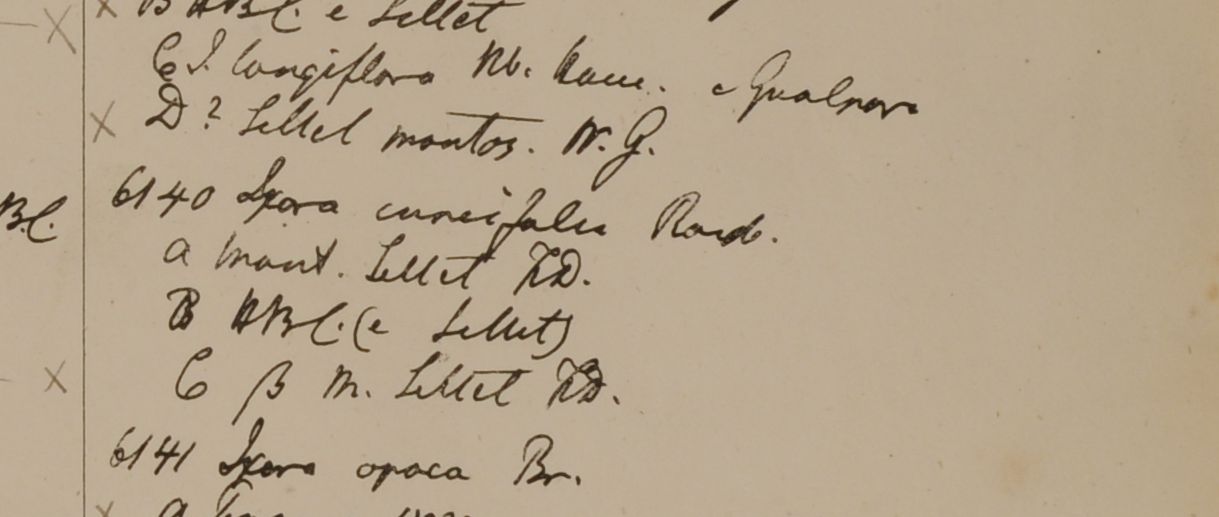 × B HBC. e Sillet
C I. longiflora Rb. hauc. e Gualpara
× D? Sillet montos. W. G.
B.C. 6140 Ixora cuneifolia Roxb.
a mont. Sillet FD.
B HBC. (e Sillet)
× C β m. Sillet FD.
6141 Ixora opaca Br.
× a